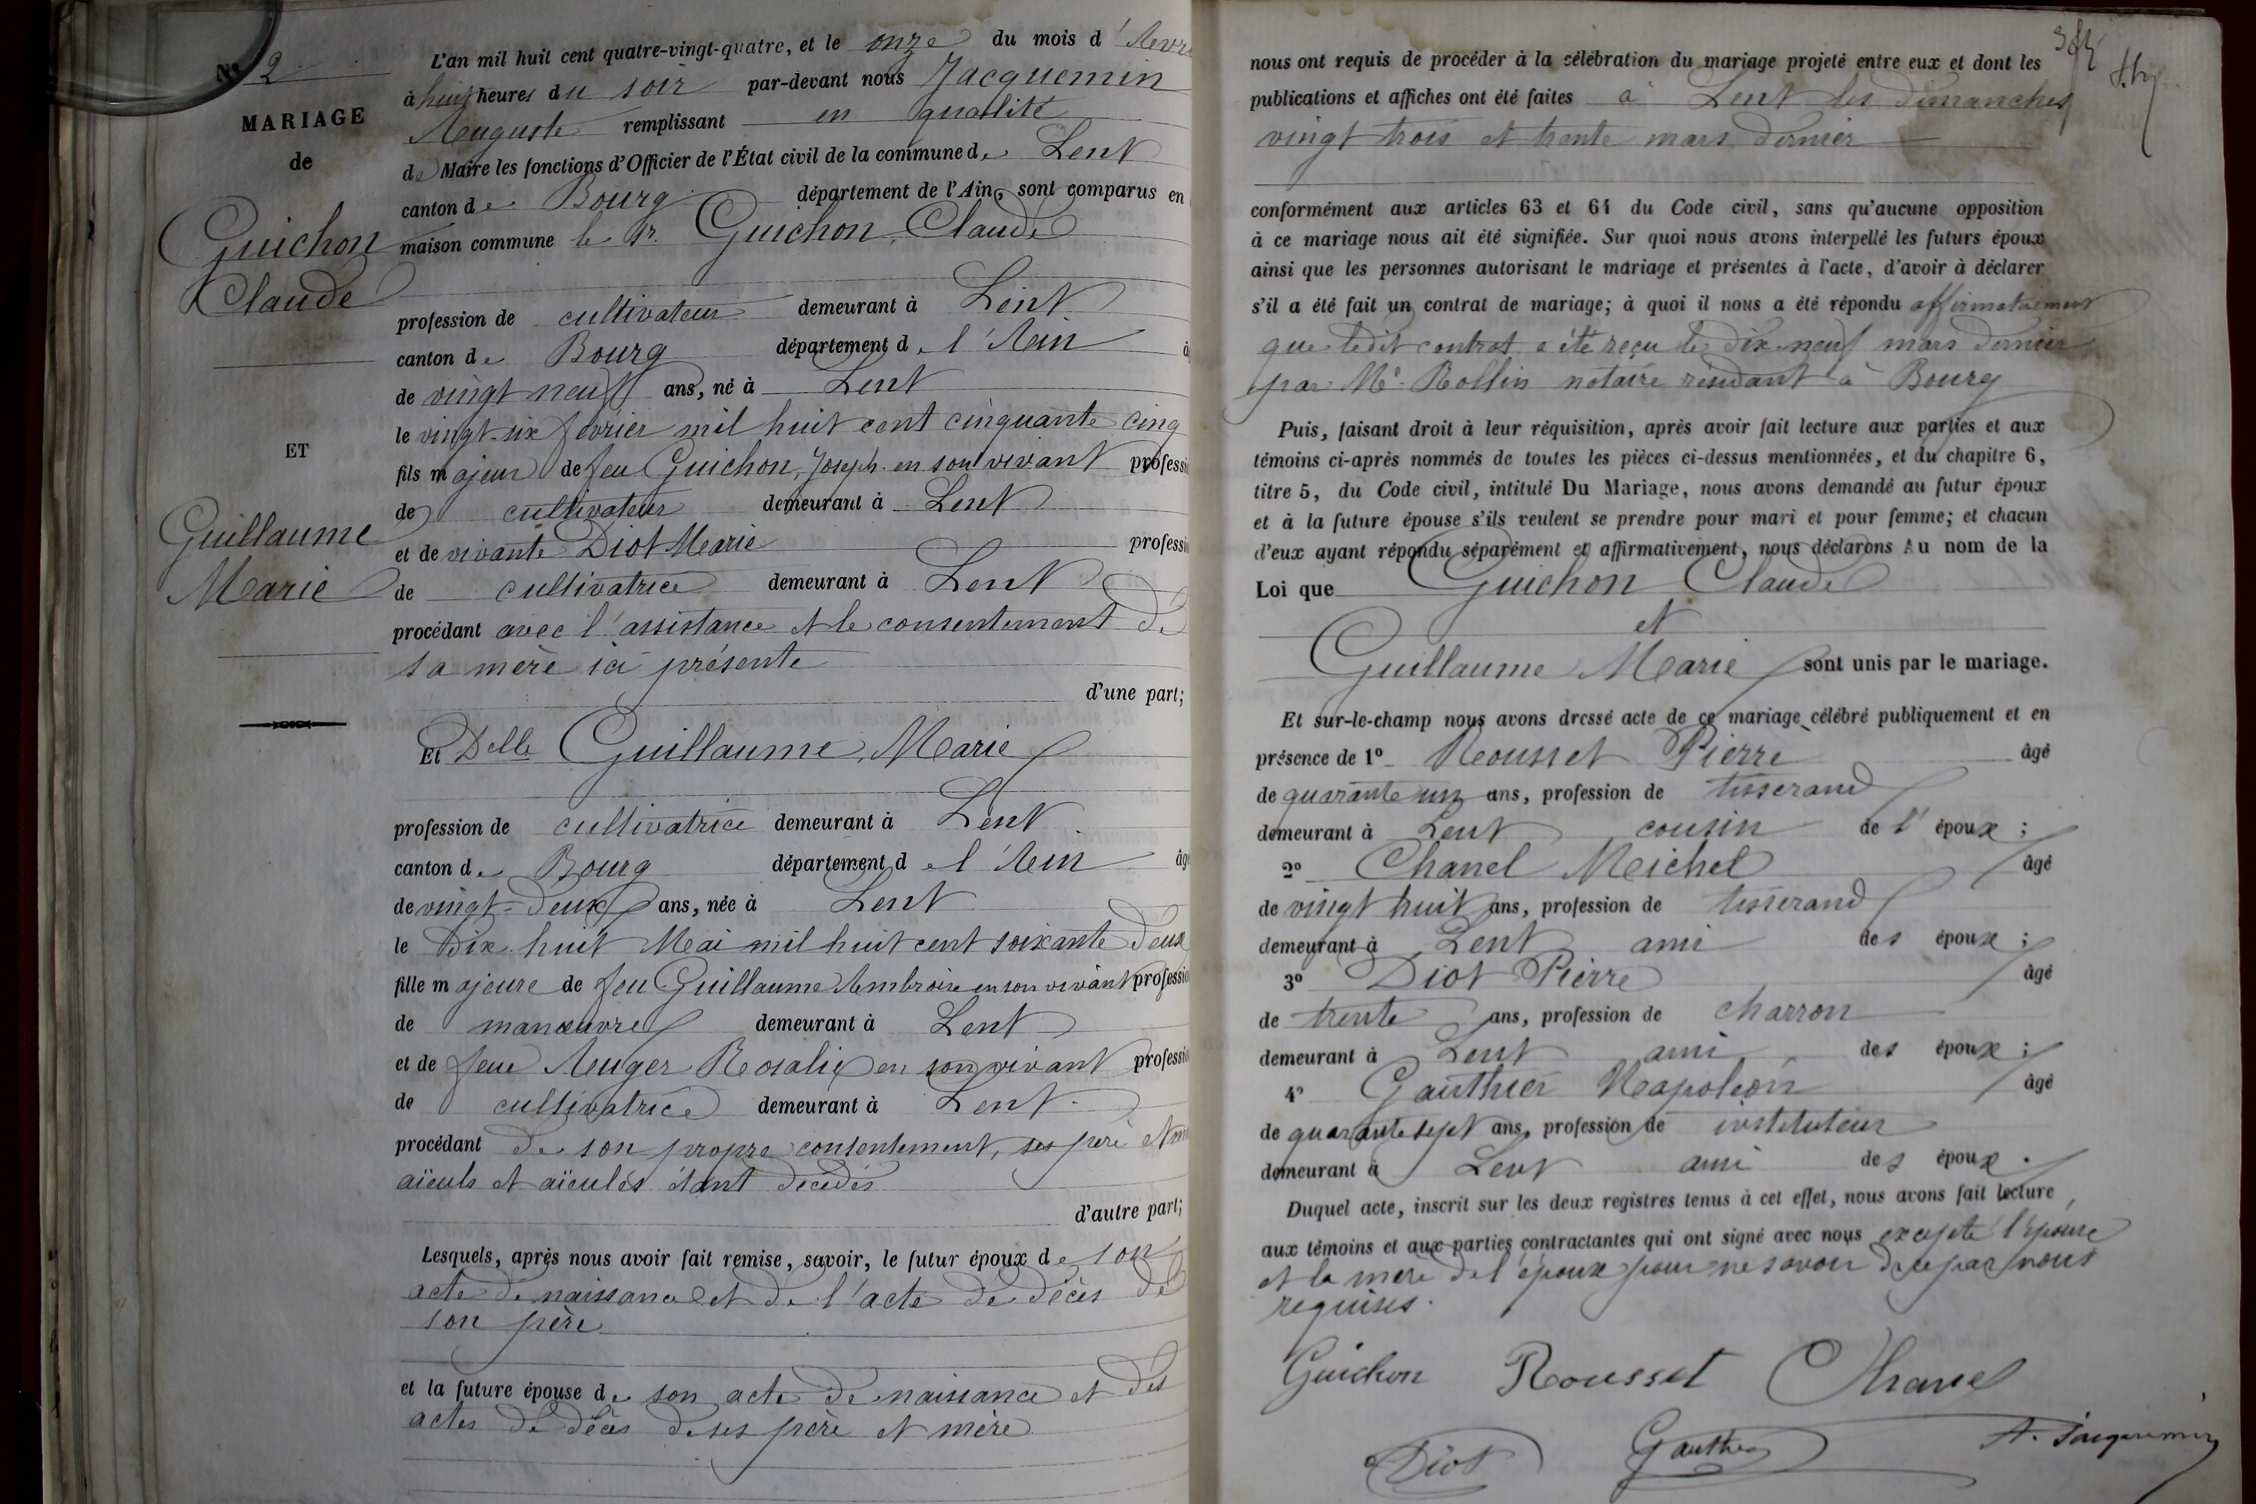 N° 2
MARIAGE
de
Guichon
Claude
ET
Guillaume
Marie
L'an mil huit cent quatre-vingt-quatre, et le onze du mois d'Avri
à huit heures du soir par-devant nous Jacquemin
Auguste remplissant en qualité
de Maire les fonctions d'Officier de l'État civil de la commune de Lent
canton de Bourg département de l'Ain, sont comparus en
maison commune le Sr. Guichon, Claude
profession de cultivateur demeurant à Lent
canton de Bourg département de l'Ain
de vingt neuf ans, né à Lent
le vingt-six février mil huit cent cinquante cinq
fils majeur de feu Guichon, Joseph en son vivant professi
de cultivateur demeurant à Lent
et de vivante Diot Marie professi
de cultivatrice demeurant à Lent
procédant avec l'assistance et le consentement de
sa mère ici présente
d'une part;
Et Delle Guillaume, Marie
profession de cultivatrice demeurant à Lent
canton de Bourg département de l'Ain âg
de vingt-deux ans, née à Lent
le Dix huit Mai mil huit cent soixante deux
fille majeure de feu Guillaume Ambroise en son vivant professi
de manœuvre demeurant à Lent
et de feue Auger Rosalie en son vivant professi
de cultivatrice demeurant à Lent
procédant de son propre consentement, ses père et m
aïeuls et aïeules étant décédés
d'autre part;
Lesquels, après nous avoir fait remise, savoir, le futur époux de son
acte de naissance et de l'acte de décès de
son père
et la future épouse de son acte de naissance et des
actes de décès de ses père et mère
nous ont requis de procéder à la célébration du mariage projeté entre eux et dont les
publications et affiches ont été faites à Lent les dimanches
vingt trois et trente mars dernier
conformément aux articles 63 et 64 du Code civil, sans qu'aucune opposition
à ce mariage nous ait été signifiée. Sur quoi nous avons interpellé les futurs époux
ainsi que les personnes autorisant le mariage et présentes à l'acte, d'avoir à déclarer
s'il a été fait un contrat de mariage; à quoi il nous a été répondu affirmativement
que ledit contrat a été reçu le dix neuf mars dernier
par Me Rollin notaire résidant à Bourg
Puis, faisant droit à leur réquisition, après avoir fait lecture aux parties et aux
témoins ci-après nommés de toutes les pièces ci-dessus mentionnées, et du chapitre 6,
titre 5, du Code civil, intitulé Du Mariage, nous avons demandé au futur époux
et à la future épouse s'ils veulent se prendre pour mari et pour femme; et chacun
d'eux ayant répondu séparément et affirmativement, nous déclarons Au nom de la
Loi que Guichon Claude
et
Guillaume Marie sont unis par le mariage.
Et sur-le-champ nous avons dressé acte de ce mariage célébré publiquement et en
présence de 1° Rousset Pierre âgé
de quarante un ans, profession de tisserand
demeurant à Lent cousin de l'époux;
2° Chanel Michel âgé
de vingt huit ans, profession de tisserand
demeurant à Lent ami des époux;
3° Diot Pierre âgé
de trente ans, profession de charron
demeurant à Lent ami des époux;
4° Gauthier Napoléon âgé
de quarante sept ans, profession de instituteur
demeurant à Lent ami des époux.
Duquel acte, inscrit sur les deux registres tenus à cet effet, nous avons fait lecture
aux témoins et aux parties contractantes qui ont signé avec nous excepté l'épouse
et la mère de l'époux pour ne savoir de ce par nous
requises.
Guichon Rousset Chanel
Diot Gauthier A. Jacquemin